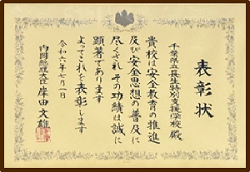 表彰状
千葉県立長生特別支援学校殿
貴校は安全教育の推進
及び安全思想の普及に
尽くされその功績は誠に
顕著であります
よってこれを表彰します
令和六年七月一日
内閣総理大臣岸田文雄